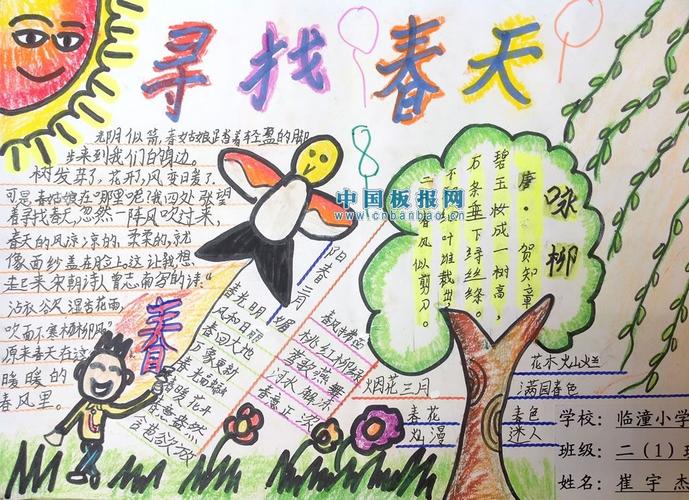 寻找春天
光阴似箭,春姑娘踏着轻盈的脚
步来到我们的身边。
树发芽了,花开了,风变日暖了。
可是春姑娘在哪里呢?我四处张望
着寻找春天,忽然一阵风吹过来,
春天的风凉凉的,柔柔的,就
像面纱盖在脸上,这让我想
起了宋朝诗人曾志南写的诗:"
沾衣欲湿杏花雨,
吹面不寒杨柳风"
原来春天在这
暖暖的
春风里。
春
中国板报网
www.cnbanbao.cn
咏柳
唐·贺知章
碧玉妆成一树高,
万条垂下绿丝绦。
不知细叶谁裁出,
二月春风似剪刀。
阳春三月
春光明媚
风和日丽
春回大地
万象更新
春暖花开
春意盎然
含苞欲放
桃红柳绿
莺歌燕舞
河水解冻
春意正浓
烟花三月
春花
灿漫
春色
迷人
花木火山火兰
满园春色
学校: 临潼小学
班级: 二(1)班
姓名: 崔宇杰